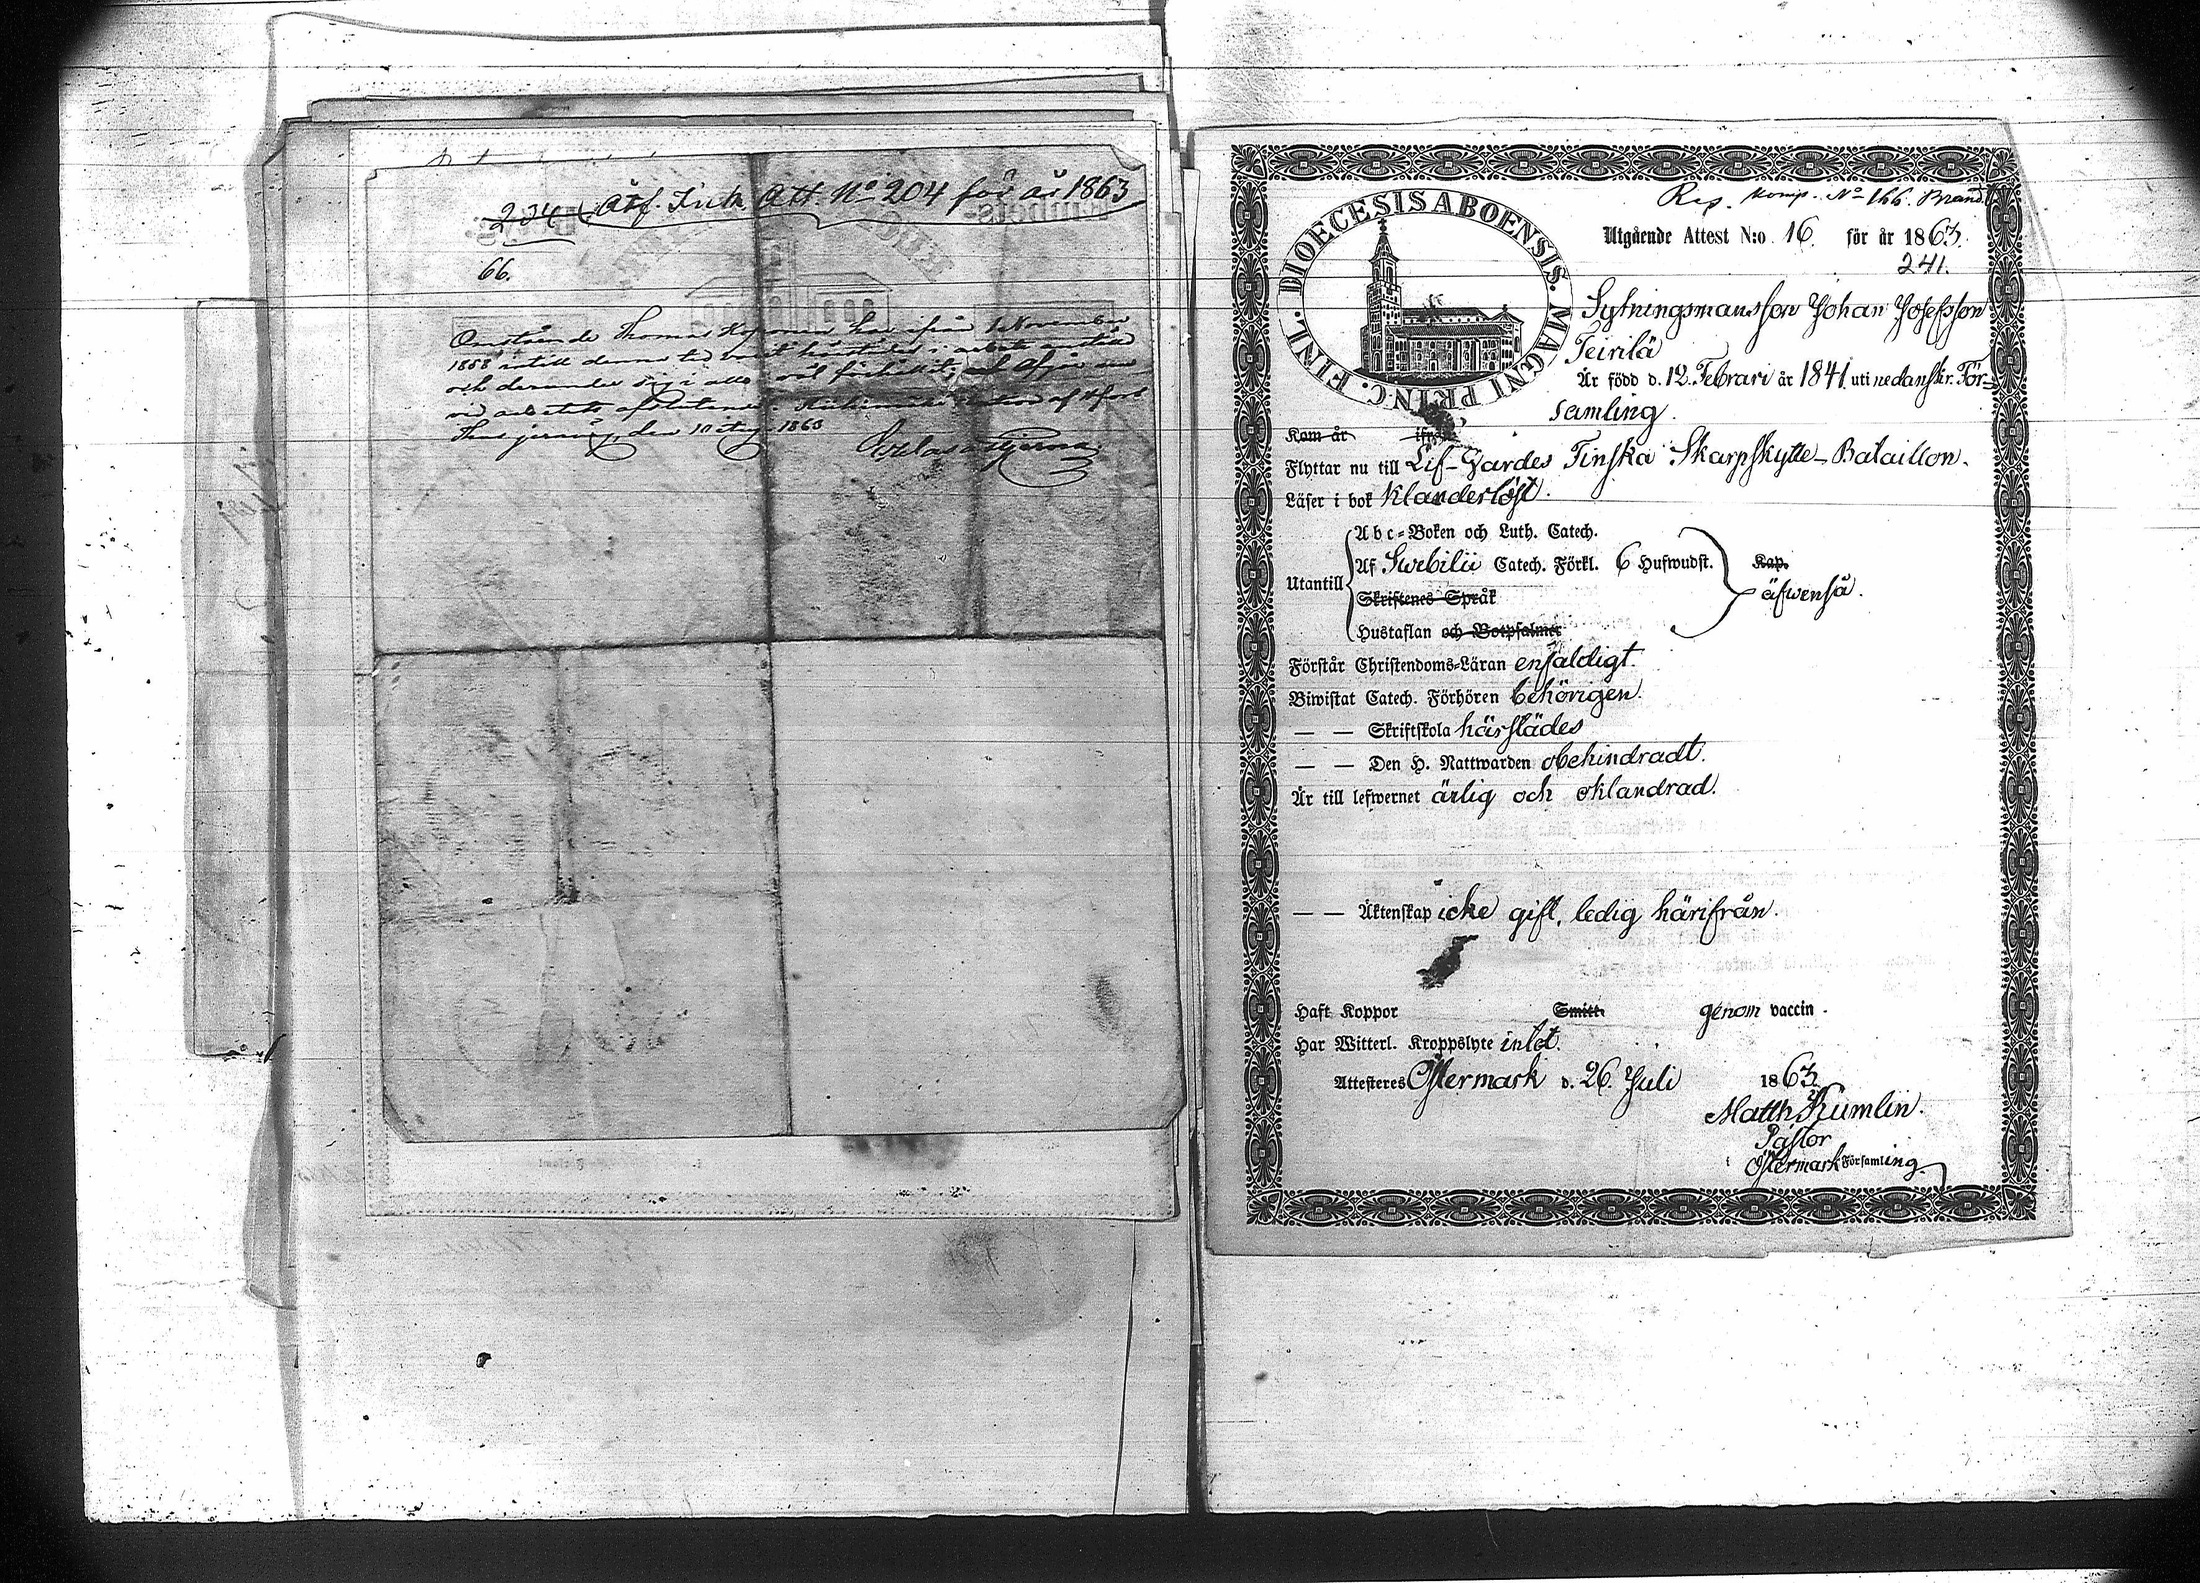 234 Åtf. Fick Att. No 204 för år 1863
66.
Omstående Thomas Koponen har ifrån 1 November
och derunder sig i allo väl förhållit,
den 10 Aug. 1863
Rep. Komp. No 166. Brand.
Utgående Attest N:o 16 för år 1863.
241.
DIOECESIS ABOENSIS. MAGNI PRINC. FINL.
Sytningsmansson Johan Josefsson
Teirilä
Är född d. 12 Februari år 1841 uti nedanskr. För-
samling.
Kom år ifrån
Flyttar nu till Lif-Gardes Finska Skarpskytte-Bataillon.
Läser i bok klanderlöst.
Abc-Boken och Luth. Catech.
Utantill Af Svebilii Catech. Förkl. 6 Hufwudst. Kap. äfwenså.
Skriftenes Språk
Hustaflan och Botpsalmer
Förstår Christendoms-Läran enfaldigt.
Biwistat Catech. Förhören behörigen.
— — Skriftskola härstädes
— — Den H. Nattwarden obehindradt.
Är till lefwernet ärlig och oklandrad.
— — Äktenskap icke gift, ledig härifrån.
Haft Koppor Smitt. genom vaccin.
Har Witterl. Kroppslyte intet.
Attesteres Östermark d. 26 Juli 1863
Matth Kumlin.
Pastor
i Östermark Församling.